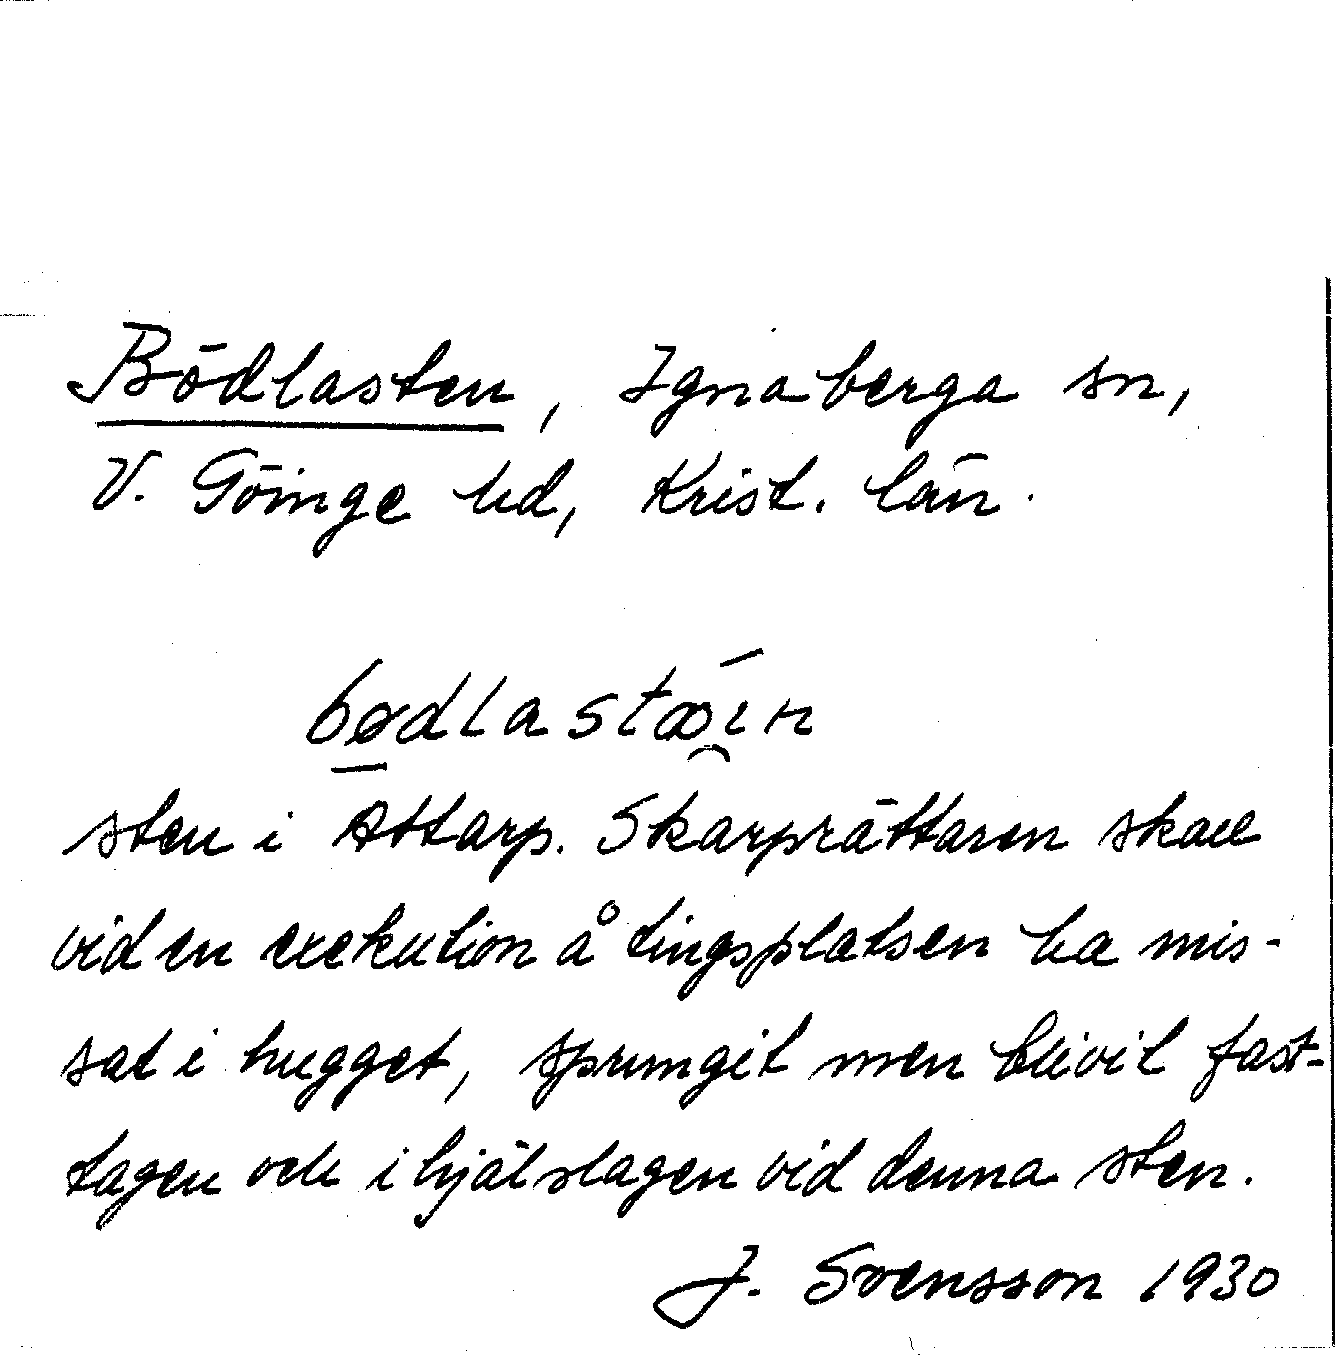 Bödlasten, Ignaberga sn,
V. Göinge hd, Krist. län.
bødlastæin
sten i Attarp. Skarprättaren skall
vid en exekution å tingsplatsen ha mis-
sat i hugget, sprungit men blivit fast-
tagen och ihjälslagen vid denna sten.
J. Svensson 1930